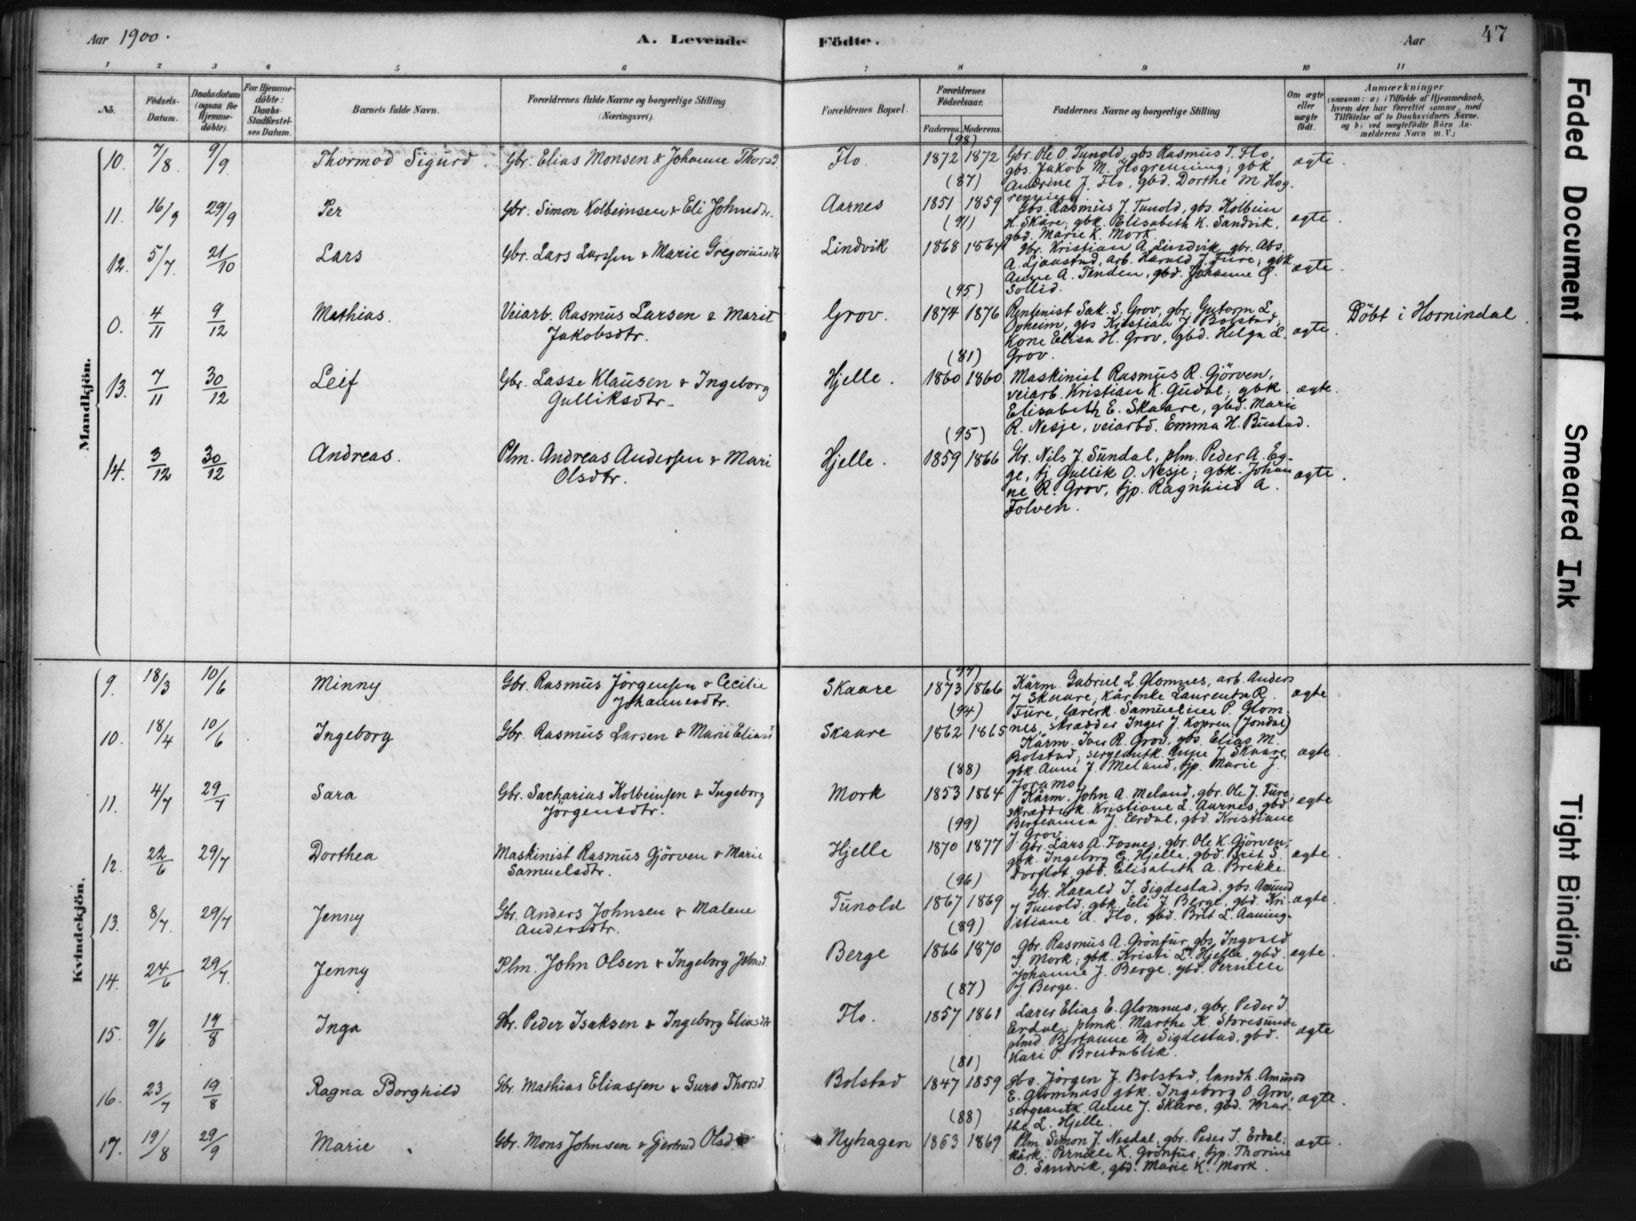 Aar 1900.
A. Levende Födte.
Aar
47
1 2 3 4 5 6 7 8 9 10 11
No.
Födsels-Datum.
Daabsdatum (ogsaa for Hjemme-döbte).
For Hjemme-döbte: Daabs-Stadfæstel-ses Datum.
Barnets fulde Navn.
Forældrenes fulde Navne og borgerlige Stilling (Næringsvei).
Forældrenes Bopæl.
Forældrenes Födselsaar.
Faderens. Moderens.
Faddernes Navne og borgerlige Stilling
Om ægte eller uægte födt.
Anmærkninger
(saasom: a) i Tilfælde af Hjemmedaab, hvem der har forrettet samme, med Tilföielse af to Daabsvidners Navne. og b) ved uægtefödte Börn An-melderens Navn m. V.)
Mandkjön.
10. 7/8 9/9 Thormod Sigurd Gbr. Elias Monsen & Johanne Thorsd. Flo. (98) 1872 1872 Gbr. Ole O. Tunold, gbs Rasmus T. Flo,
gbs. Jakob M. Hogrenning; gbk
Andrine J. Flo, gbd. Dorthe M. Hog-
renning ægte.
11. 16/9 29/9 Per Gbr. Simon Kolbeinsen & Eli Johnsdtr. Aarnes (87) 1851 1859 Gbs. Rasmus J. Tunold, gbs. Kolbein
K. Skåre, gbk. Elisabeth K. Sandvik,
gbd. Marie K. Mork ægte.
12. 5/7. 21/10 Lars Gbr. Lars Larssen & Marie Gregoriusdtr Lindvik (91) 1868 1864 Gbr. Kristian A. Lindvik, gbr. Abs.
A. Ljaastad, arb. Harald J. Fure; gbk
Anne A. Tenden, gbd. Johanne G.
Sollid. ægte.
0. 4/11 9/12 Mathias. Veiarb. Rasmus Larsen & Marit
Jakobsdtr. Grov. (95) 1874 1876 Rentenist Sak. S. Grov, gbr. Guttorm L.
Opheim, gbs Kristian J. Bolstad,
Kone Elisa H. Grov, gbd. Helga L.
Grov. ægte. Döbt i Hornindal.
13. 7/11 30/12 Leif Gbr. Lasse Klausen & Ingeborg
Gulliksdtr. Hjelle. (81) 1860 1860 Maskinist Rasmus R. Gjörven,
veiarb. Kristian K. Gudal; gbk
Elisabeth E. Skaare, gbd. Marie
R. Nesje, veiarbd. Emma H. Bustad. ægte.
14. 3/12 30/12 Andreas. Plm. Andreas Anderssen & Mari
Olsdtr. Hjelle. (95) 1859 1866 Gbr. Nils J. Sundal, plm. Peder A. Eg-
ge, tj Gullik O. Nesje; gbk. Johan
ne R. Grov, tjp. Ragnhild A.
Folven. ægte.
Kvindekjön.
9. 18/3 10/6 Minny Gbr. Rasmus Jörgenssen & Cecilie
Johannesdtr. Skaare (97) 1873 1866 Kårm. Gabriel L Glomnes, arb. Anders
J Skaare, kårenke Laurentse R.
Fure, lærerk. Samueline P. Glom-
nes, skrædder Inger J. Kopren (Jondal) ægte.
10. 18/4 10/6 Ingeborg Gbr. Rasmus Larsen & Marie Eliasd. Skaare (94) 1862 1865 Kårm. Iver R. Grov, gbs. Elias M.
Bolstad; sergeantk. Anne J Skaare,
gbk. Anne J Meland, tjp. Marie J ægte
11. 4/7 29/7 Sara Gbr. Sacharias Kolbeinsen & Ingeborg
Jörgensdtr. Mork (88) 1853 1864 Kårm. John A. Meland, gbr. Ole J. Fure,
skrædderk. Kristiane L. Aarnes, gbd
J. Eerdal, gbd. Kristiane
J Grov ægte
12 22/6 29/7 Dorthea Maskinist Rasmus Gjörven & Marie
Samuelsdtr. Hjelle (99) 1870 1877 Gbr. Lars A. Fosnes, gbr. Ole K. Gjörven,
gbk. Ingeborg G. Hjelle, gbd. Brit S.
Dorflot, gbd. Elisabeth A. Brekke. ægte.
13. 8/7. 29/7 Jenny Gbr. Anders Johnsen & Malene
Andersdtr. Tunold (96) 1867 1869 Gbr. Harald J. Sigdestad, gbs. Amund
J Tunold, gbk. Eli J Berge, gbd. Kri-
stiane A. Flo, gbd. Brit L. Aaning- ægte.
14. 24/6 29/7. Jenny Plm. John Olsen & Ingeborg Johnsd. Berge (89) 1866 1870 Gbr. Rasmus A. Grönfur, gbs. Ingvald
J. Mork; gbk. Kristi L. Hjelle, gbd.
Johanne J. Berge, gbd. Pernelle
J. Berge. ægte.
15. 9/6 19/8 Inga Gbr. Peder Isaksen & Ingeborg Eliasdtr Flo. (87) 1857 1861 Lærer Elias E. Glomnes, gbr. Peder J.
Erdal; plmk. Marthe K. Storesunde
plmd. Bertanne M. Sigdestad, gbd.
Kari P. Breidablik. ægte
16. 23/7 19/8 Ragna Borghild Gbr. Mathias Eliassen & Guro Thorsd. Bolstad (81) 1847 1859 gbs. Jörgen J. Bolstad, landh. Amund
E. Glomnes, gbk. Ingeborg O. Grov,
sergeantk. Anne J. Skåre, gbd. Mar-
the L. Hjelle. ægte.
17. 19/8 29/9 Marie Gbr. Mons Johnsen & Gjertrud Olsd. Nyhagen (88) 1863 1869 Plm. Simon J. Nesdal, gbr. Peder J. Erdal;
kårk. Pernille K. Grönfur, tjp. Thorine
O. Sandvik, gbd. Marie K. Mork. ægte.
Faded Document
Smeared Ink
Tight Binding